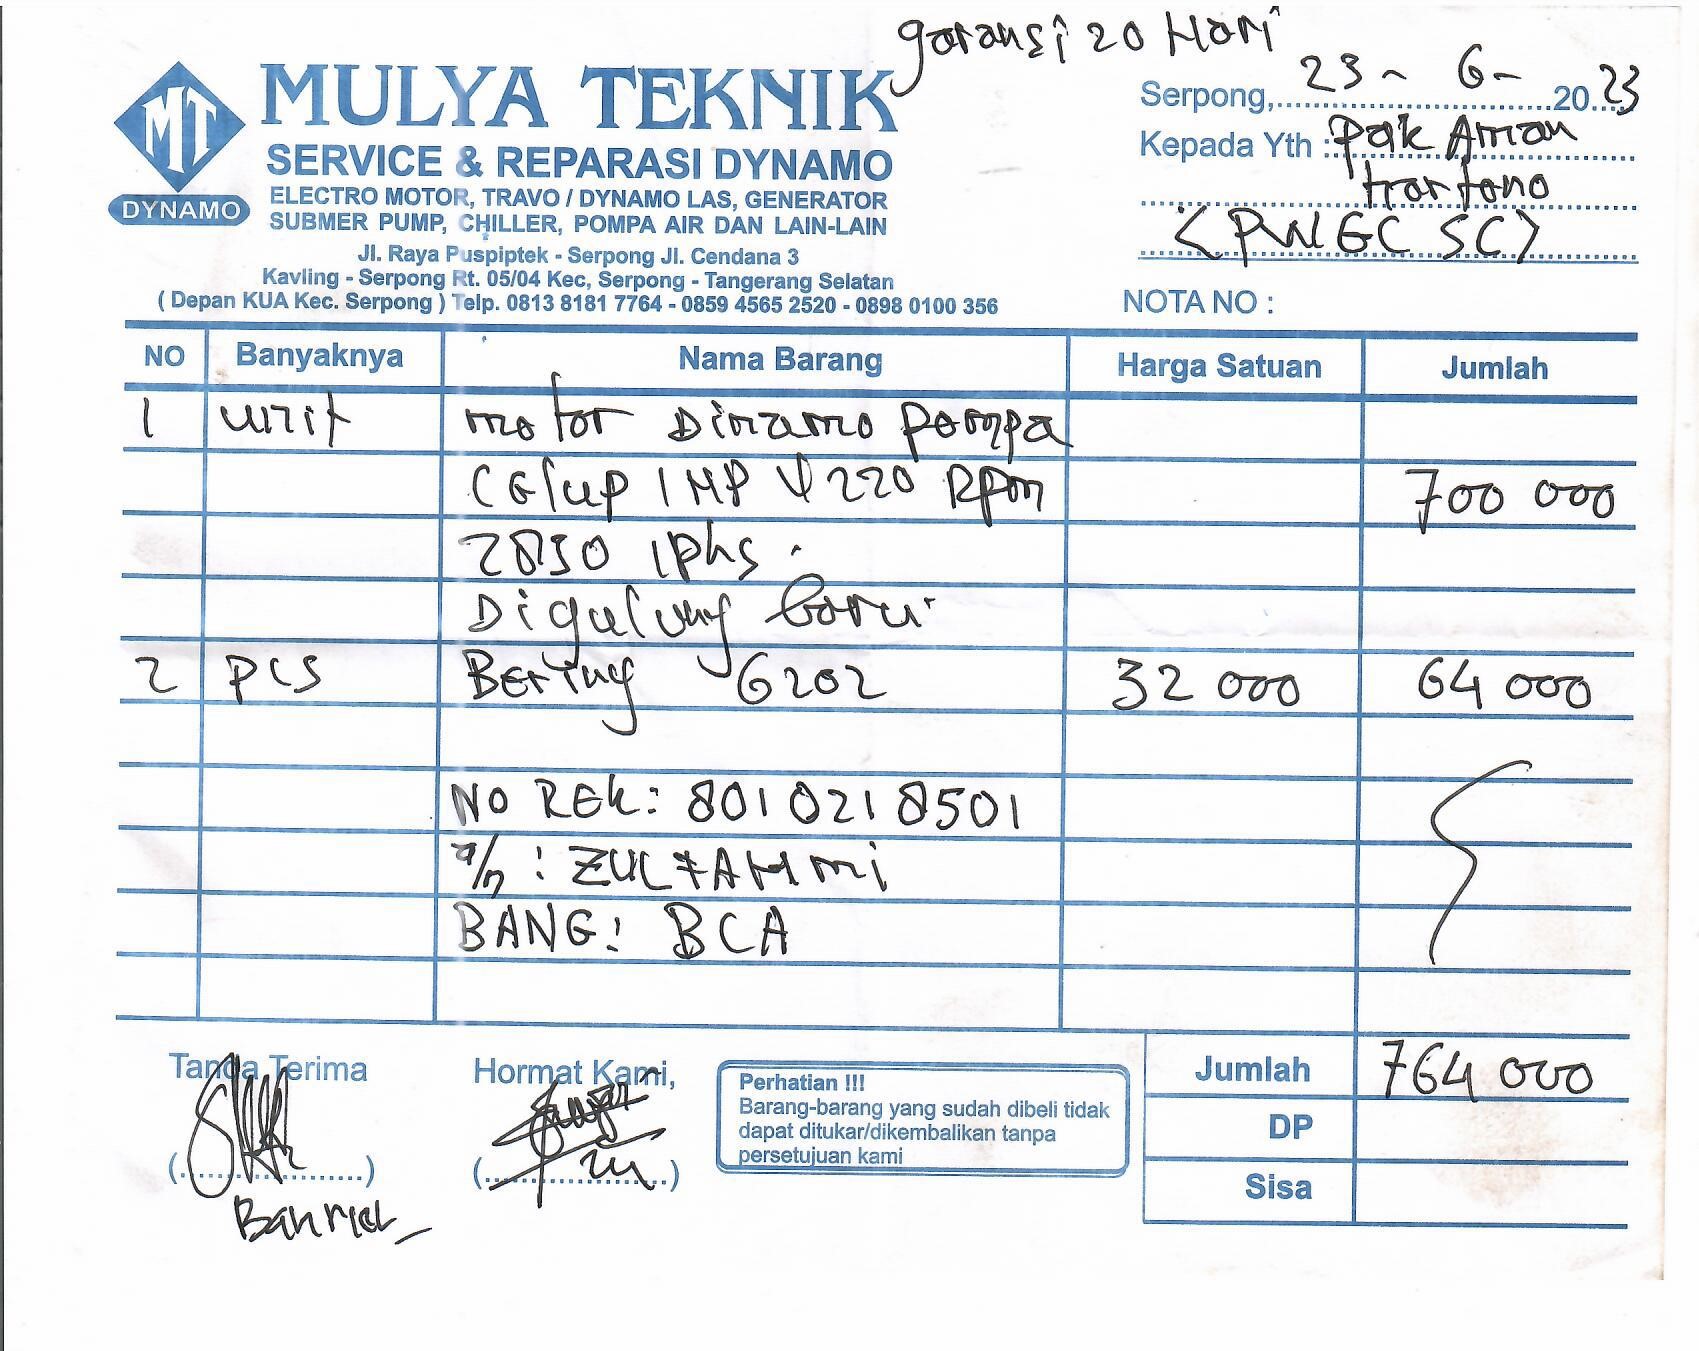 garansi 20 Hari
MULYA TEKNIK
SERVICE & REPARASI DYNAMO
ELECTRO MOTOR, TRAVO / DYNAMO LAS, GENERATOR
SUBMER PUMP, CHILLER, POMPA AIR DAN LAIN-LAIN
Jl. Raya Puspiptek - Serpong Jl. Cendana 3
Kavling - Serpong Rt. 05/04 Kec, Serpong - Tangerang Selatan
( Depan KUA Kec. Serpong ) Telp. 0813 8181 7764 - 0859 4565 2520 - 0898 0100 356
MT
DYNAMO
Serpong, 23 - 6 - 2023
Kepada Yth : Pak Aman
Hartono
<PWGC SC>
NOTA NO :
NO Banyaknya Nama Barang Harga Satuan Jumlah
1 unit motor Dinamo Pompa
Celup 1 HP V 220 Rpm 700 000
2850 1phs.
Digulung baru.
2 PCS Bering 6202 32 000 64 000
NO REK: 8010218501
a/n : ZULFAHMI
BANG: BCA
Jumlah 764 000
DP
Sisa
Tanda Terima
Hormat Kami,
Perhatian !!!
Barang-barang yang sudah dibeli tidak
dapat ditukar/dikembalikan tanpa
persetujuan kami